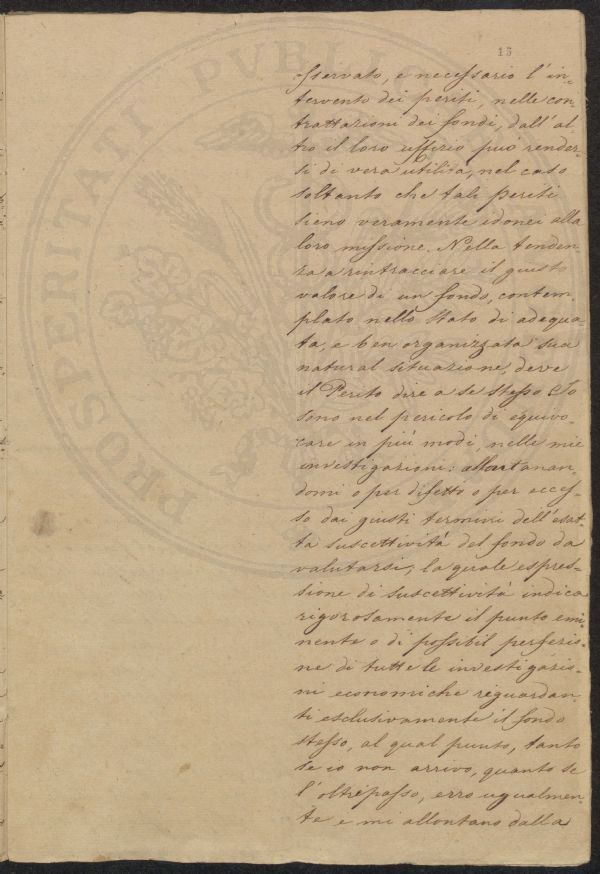 13
PROSPERITATI PVBLIC
sservato, e necessario l'in-
tervento dei periti, nelle con-
trattazioni dei fondi, dall'al-
tro il loro uffizio può render-
si di vera utilità, nel caso
soltanto che tali periti
sieno veramente idonei alla
loro missione. Nella tenden-
za a rintracciare il giusto
valore di un fondo, contem-
plato nello stato di adequa-
ta, e ben organizzata sua
natural situazione, deve
il Perito dire a se stesso Io
sono nel pericolo di equivo-
care in più modi, nelle mie
investigazioni: allontanan-
domi o per difetto o per ecces-
so dai giusti termini dell'esat-
ta suscettività del fondo da
valutarsi, la quale espres-
sione di suscettività indica
rigorosamente il punto emi-
nente o di possibil perfezio-
ne di tutte le investigazio-
ni economiche riguardan-
ti esclusivamente il fondo
stesso, al qual punto, tanto
se io non arrivo, quanto se
l'oltrepasso, erro ugualmen-
te e mi allontano dalla